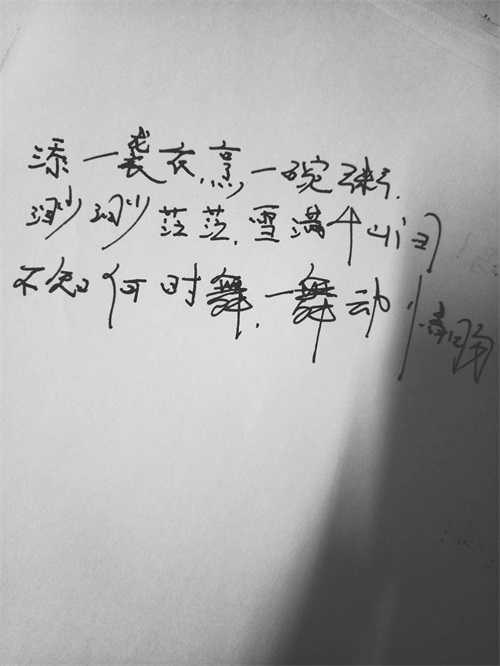 添一袭衣,烹一碗粥.
渺渺茫茫,雪满千山间
不知何时舞,一舞动